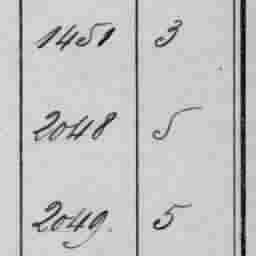 1451 3
2048 5
2049. 5